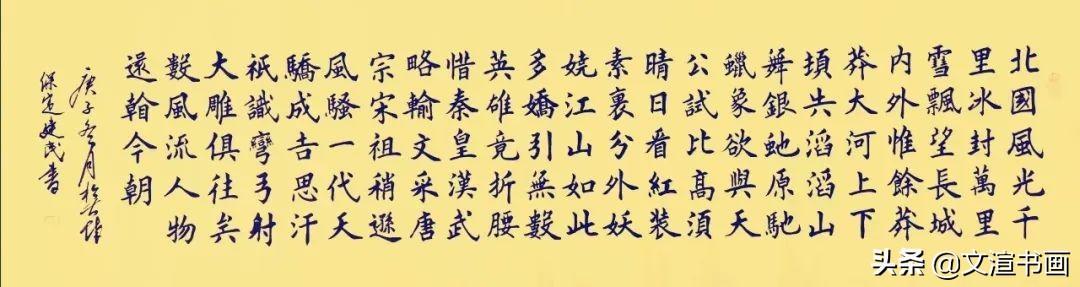 北國風光千
里冰封萬里
雪飄望長城
内外惟餘莽
莽大河上下
頓失滔滔山
舞銀虵原馳
蠟象欲與天
公試比髙須
晴日看紅装
素裹分外妖
嬈江山如此
多嬌引無數
英雄竞折腰
惜秦皇漢武
略輸文采唐
宗宋祖稍遜
風騷一代天
驕成吉思汗
祇識彎弓射
大雕俱往矣
數風流人物
還看今朝
庚子冬月於
保定建民書
头条 @文渲书画